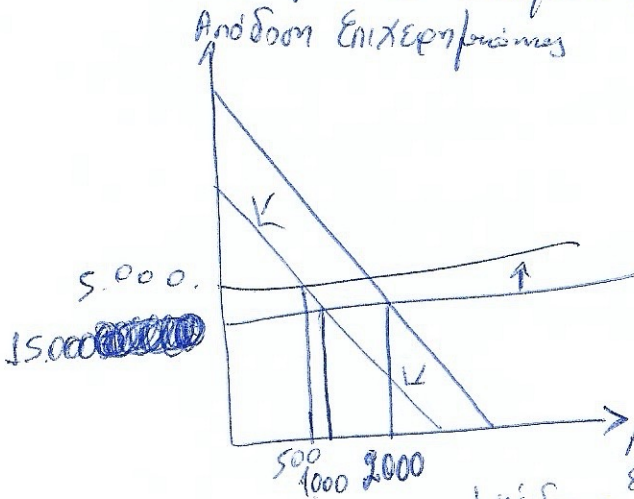 Απόδοση Επιχειρηματικότητας
5.000.
15.000
500
1000
2000